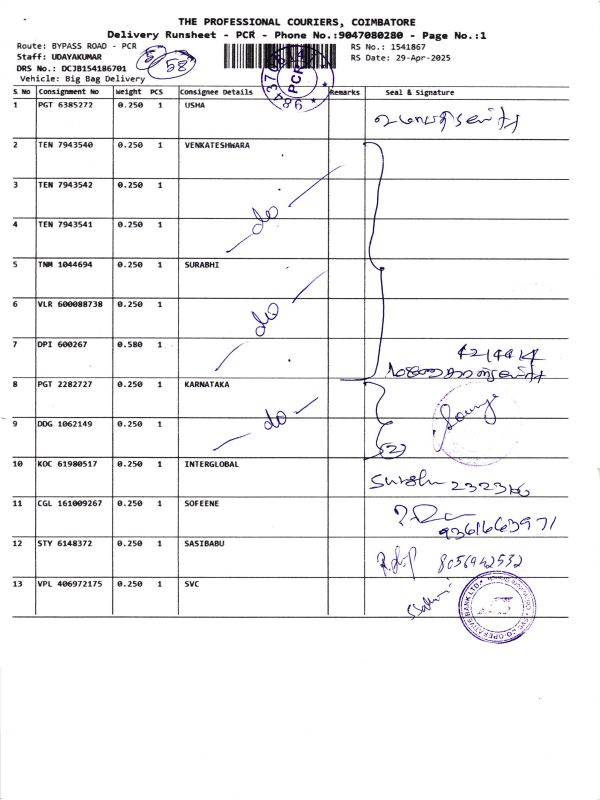 THE PROFESSIONAL COURIERS, COIMBATORE
Delivery Runsheet - PCR - Phone No.:9047080280 - Page No.:1
Route: BYPASS ROAD - PCR
RS No.: 1541867
Staff: UDAYAKUMAR
58
RS Date: 29-Apr-2025
DRS No.: DCJB154186701
Vehicle: Big Bag Delivery
PCR
S No Consignment No Weight PCS Consignee Details Remarks Seal & Signature
1 PGT 6385272 0.250 1 USHA
2 TEN 7943540 0.250 1 VENKATESHWARA
3 TEN 7943542 0.250 1
4 TEN 7943541 0.250 1
do
5 TNM 1044694 0.250 1 SURABHI
6 VLR 600088738 0.250 1
do
7 DPI 600267 0.580 1
8 PGT 2282727 0.250 1 KARNATAKA
9 DDG 1062149 0.250 1 do
(2)
10 KOC 61980517 0.250 1 INTERGLOBAL
11 CGL 161009267 0.250 1 SOFEENE
9361663971
12 STY 6148372 0.250 1 SASIBABU 8056942532
13 VPL 406972175 0.250 1 SVC
SVC CO-OPERATIVE BANK LTD.